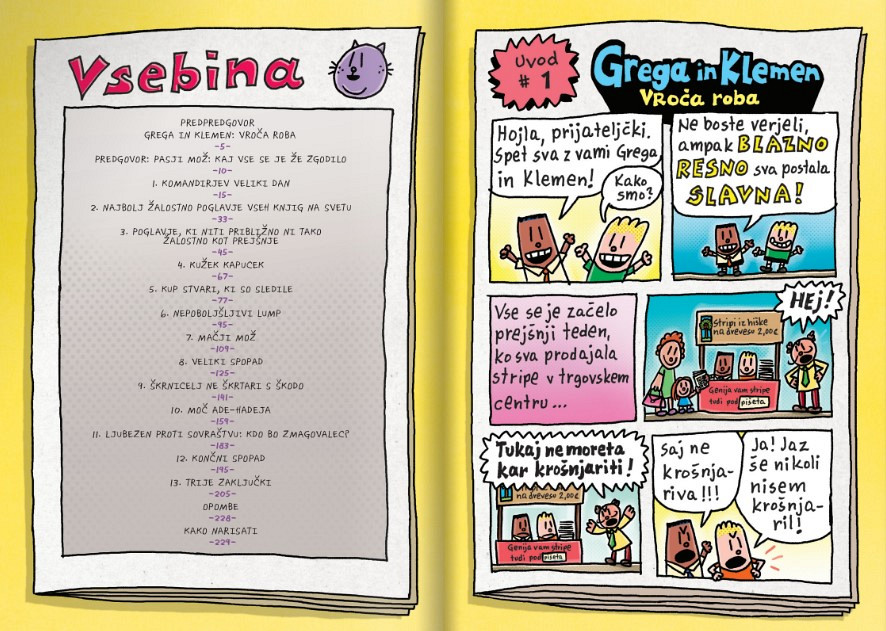 Vsebina
PREDPREDGOVOR
GREGA IN KLEMEN: VROČA ROBA
-5-
PREDGOVOR: PASJI MOŽ: KAJ VSE SE JE ŽE ZGODILO
-10-
1. KOMANDIRJEV VELIKI DAN
-15-
2. NAJBOLJ ŽALOSTNO POGLAVJE VSEH KNJIG NA SVETU
-33-
3. POGLAVJE, KI NITI PRIBLIŽNO NI TAKO
ŽALOSTNO KOT PREJŠNJE
-45-
4. KUŽEK KAPUCEK
-67-
5. KUP STVARI, KI SO SLEDILE
-77-
6. NEPOBOLJŠLJIVI LUMP
-95-
7. MAČJI MOŽ
-109-
8. VELIKI SPOPAD
-125-
9. ŠKRNICELJ NE ŠKRTARI S ŠKODO
-141-
10. MOČ ADE-HADEJA
-159-
11. LJUBEZEN PROTI SOVRAŠTVU: KDO BO ZMAGOVALEC?
-183-
12. KONČNI SPOPAD
-195-
13. TRIJE ZAKLJUČKI
-205-
OPOMBE
-228-
KAKO NARISATI
-229-
Uvod
# 1
Grega in Klemen
VROča roba
Hojla, prijateljčki.
Spet sva z vami Grega
in Klemen!
Kako
smo?
Ne boste verjeli,
ampak BLAZNO
RESNO sva postala
SLAVNA!
Vse se je začelo
prejšnji teden,
ko sva prodajala
stripe v trgovskem
centru...
HEJ!
Stripi iz hiške
na drevesu 2,00€
Genija vam stripe
tudi podpišeta
Tukaj ne moreta
kar krošnjariti!
na drevesu 2,00€
Genija vam stripe
tudi podpišeta
Saj ne
krošnja-
riva!!!
Ja! Jaz
še nikoli
nisem
krošnja-
ril!